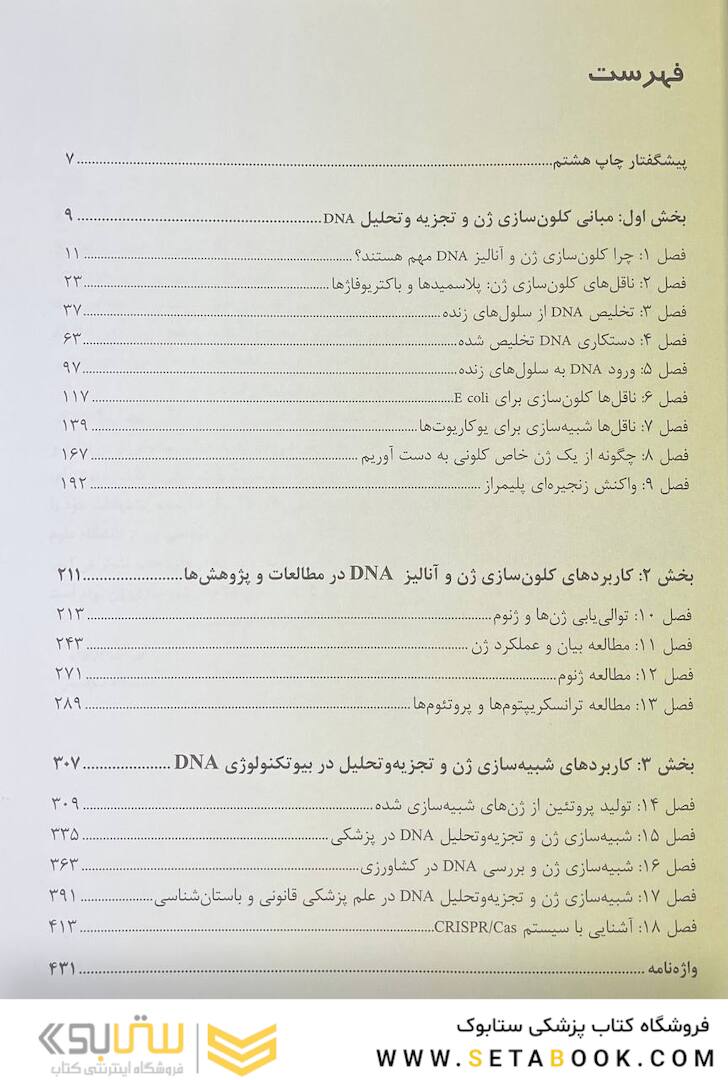 فهرست
پیشگفتار چاپ هشتم ۷
بخش اول: مبانی کلون‌سازی ژن و تجزیه وتحلیل DNA ۹
فصل ۱: چرا کلون‌سازی ژن و آنالیز DNA مهم هستند؟ ۱۱
فصل ۲: ناقل‌های کلون‌سازی ژن: پلاسمیدها و باکتریوفاژها ۲۳
فصل ۳: تخلیص DNA از سلول‌های زنده ۳۷
فصل ۴: دستکاری DNA تخلیص شده ۶۳
فصل ۵: ورود DNA به سلول‌های زنده ۹۷
فصل ۶: ناقل‌ها کلون‌سازی برای E coli ۱۱۷
فصل ۷: ناقل‌ها شبیه‌سازی برای یوکاریوت‌ها ۱۳۹
فصل ۸: چگونه از یک ژن خاص کلونی به دست آوریم ۱۶۷
فصل ۹: واکنش زنجیره‌ای پلیمراز ۱۹۲
بخش ۲: کاربردهای کلون‌سازی ژن و آنالیز DNA در مطالعات و پژوهش‌ها ۲۱۱
فصل ۱۰: توالی‌یابی ژن‌ها و ژنوم ۲۱۳
فصل ۱۱: مطالعه بیان و عملکرد ژن ۲۴۳
فصل ۱۲: مطالعه ژنوم ۲۷۱
فصل ۱۳: مطالعه ترانسکریپتوم‌ها و پروتئوم‌ها ۲۸۹
بخش ۳: کاربردهای شبیه‌سازی ژن و تجزیه‌وتحلیل در بیوتکنولوژی DNA ۳۰۷
فصل ۱۴: تولید پروتئین از ژن‌های شبیه‌سازی شده ۳۰۹
فصل ۱۵: شبیه‌سازی ژن و تجزیه‌وتحلیل DNA در پزشکی ۳۳۵
فصل ۱۶: شبیه‌سازی ژن و بررسی DNA در کشاورزی ۳۶۳
فصل ۱۷: شبیه‌سازی ژن و تجزیه‌وتحلیل DNA در علم پزشکی قانونی و باستان‌شناسی ۳۹۱
فصل ۱۸: آشنایی با سیستم CRISPR/Cas ۴۱۳
واژه‌نامه ۴۳۱
فروشگاه کتاب پزشکی ستابوک
WWW.SETABOOK.COM
ستابوک
فروشگاه اینترنتی کتاب